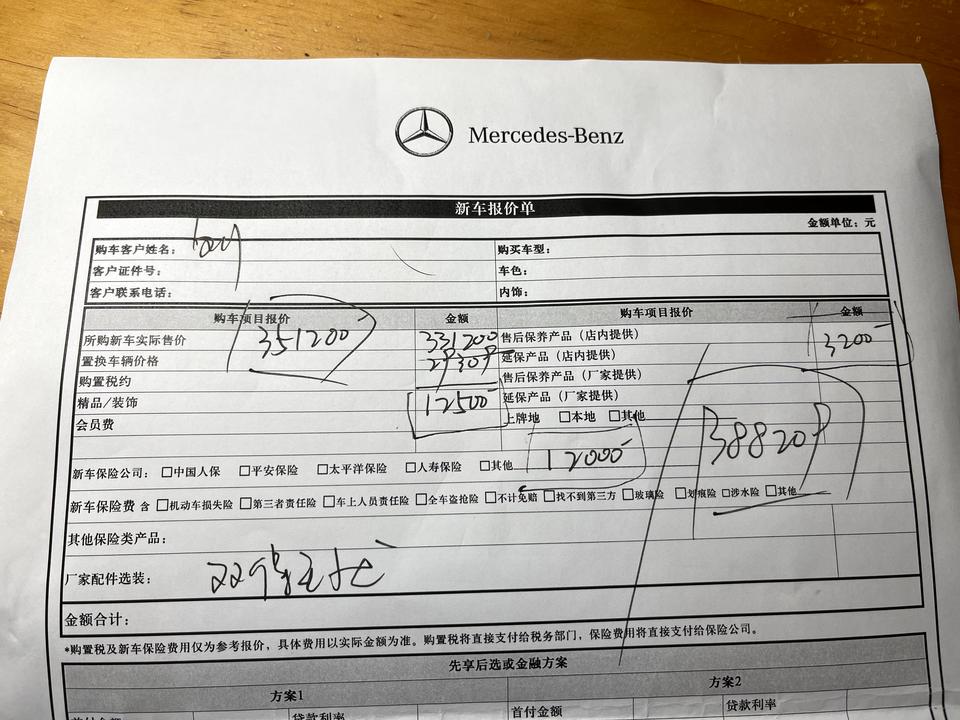 Mercedes-Benz
新车报价单
金额单位：元
购车客户姓名：
购买车型：
客户证件号：
车色：
客户联系电话：
内饰：
购车项目报价 金额 购车项目报价 金额
所购新车实际售价 351200 331200 售后保养产品（店内提供） 3200
置换车辆价格 29309 延保产品（店内提供）
购置税约 售后保养产品（厂家提供）
精品/装饰 12500 延保产品（厂家提供）
会员费 上牌地 □本地 □其他 388209
新车保险公司： □中国人保 □平安保险 □太平洋保险 □人寿保险 □其他 12000
新车保险费 含 □机动车损失险 □第三者责任险 □车上人员责任险 □全车盗抢险 □不计免赔 □找不到第三方 □玻璃险 □划痕险 □涉水险 □其他
其他保险类产品：
厂家配件选装：
金额合计：
*购置税及新车保险费用仅为参考报价，具体费用以实际金额为准。购置税将直接支付给税务部门，保险费用将直接支付给保险公司。
先享后选或金融方案
方案1 方案2
首付金额 贷款利率 首付金额 贷款利率